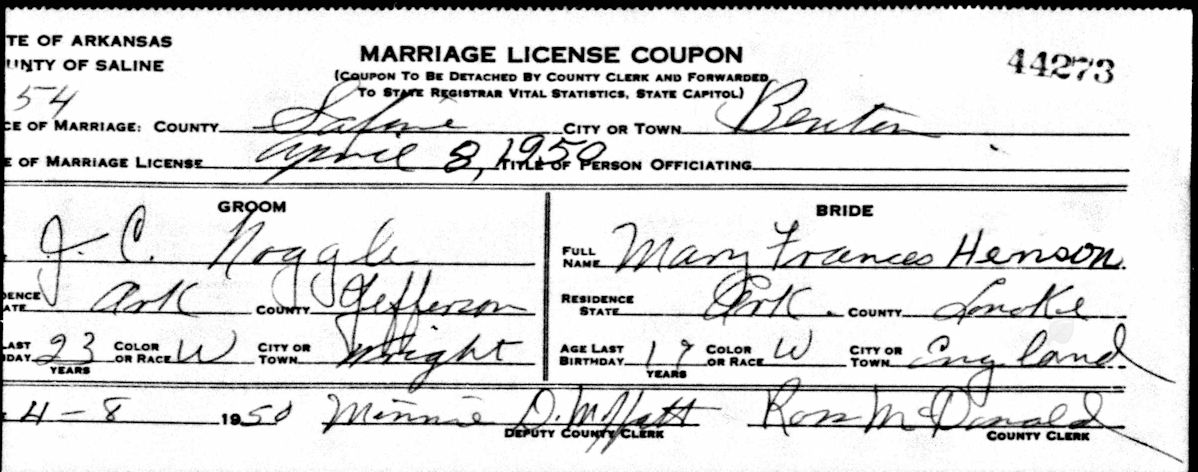 TE OF ARKANSAS
UNTY OF SALINE
MARRIAGE LICENSE COUPON
44273
(COUPON TO BE DETACHED BY COUNTY CLERK AND FORWARDED
TO STATE REGISTRAR VITAL STATISTICS, STATE CAPITOL)
54
CE OF MARRIAGE: COUNTY Saline CITY OR TOWN Benton
E OF MARRIAGE LICENSE April 8, 1950 TITLE OF PERSON OFFICIATING
GROOM
J. C. Noggle
DENCE ATE Ark COUNTY Jefferson
LAST HDAY 23 YEARS COLOR OR RACE W CITY OR TOWN Wright
BRIDE
FULL NAME Mary Frances Henson
RESIDENCE STATE Ark. COUNTY Lonoke
AGE LAST BIRTHDAY YEARS COLOR OR RACE W CITY OR TOWN England
4-8 1950 Minnie D. Moffatt DEPUTY COUNTY CLERK Ross McDonald COUNTY CLERK